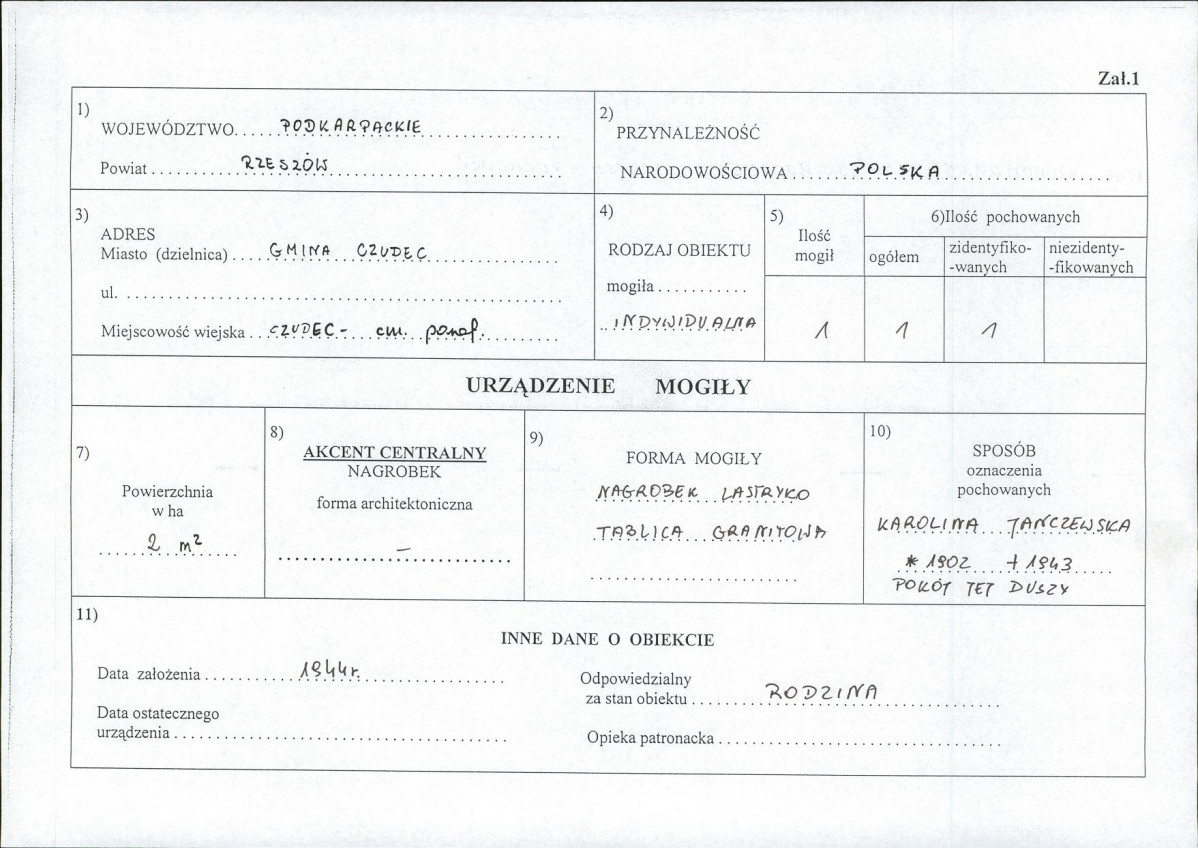 Zał.1
1)
WOJEWÓDZTWO.....PODKARPACKIE
Powiat...........RZESZÓW
2)
PRZYNALEŻNOŚĆ
NARODOWOŚCIOWA.......POLSKA
3)
ADRES
Miasto (dzielnica)....GMINA CZUDEC
ul.
Miejscowość wiejska...CZUDEC - cm. paraf.
4)
RODZAJ OBIEKTU
mogiła...........
INDYWIDUALNA
5)
Ilość
mogił
1
6)Ilość pochowanych
ogółem
zidentyfiko-
-wanych
niezidenty-
-fikowanych
1 1
URZĄDZENIE MOGIŁY
7)
Powierzchnia
w ha
2 m²
8)
AKCENT CENTRALNY
NAGROBEK
forma architektoniczna
–
9)
FORMA MOGIŁY
NAGROBEK LASTRYKO
TABLICA GRANITOWA
10)
SPOSÓB
oznaczenia
pochowanych
KAROLINA JAŃCZEWSKA
* 1902 + 1943
POKÓJ JEJ DUSZY
11)
INNE DANE O OBIEKCIE
Data założenia...........1944r.
Data ostatecznego
urządzenia
Odpowiedzialny
za stan obiektu.........RODZINA
Opieka patronacka